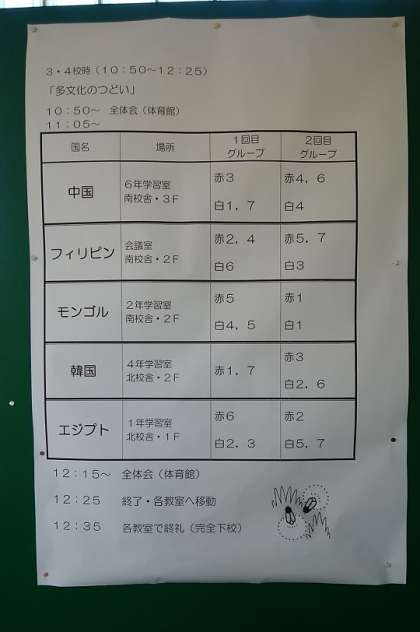 3・4校時(10:50～12:25)
「多文化のつどい」
10:50～ 全体会(体育館)
11:05～
国名 場所 1回目グループ 2回目グループ
中国 6年学習室 赤3 赤4，6
南校舎・3F 白1，7 白4
フィリピン 会議室 赤2，4 赤5，7
南校舎・2F 白6 白3
モンゴル 2年学習室 赤5 赤1
南校舎・2F 白4，5 白1
韓国 4年学習室 赤1，7 赤3
北校舎・2F 白2，6
エジプト 1年学習室 赤6 赤2
北校舎・1F 白2，3 白5，7
12:15～ 全体会(体育館)
12:25 終了・各教室へ移動
12:35 各教室で終礼(完全下校)